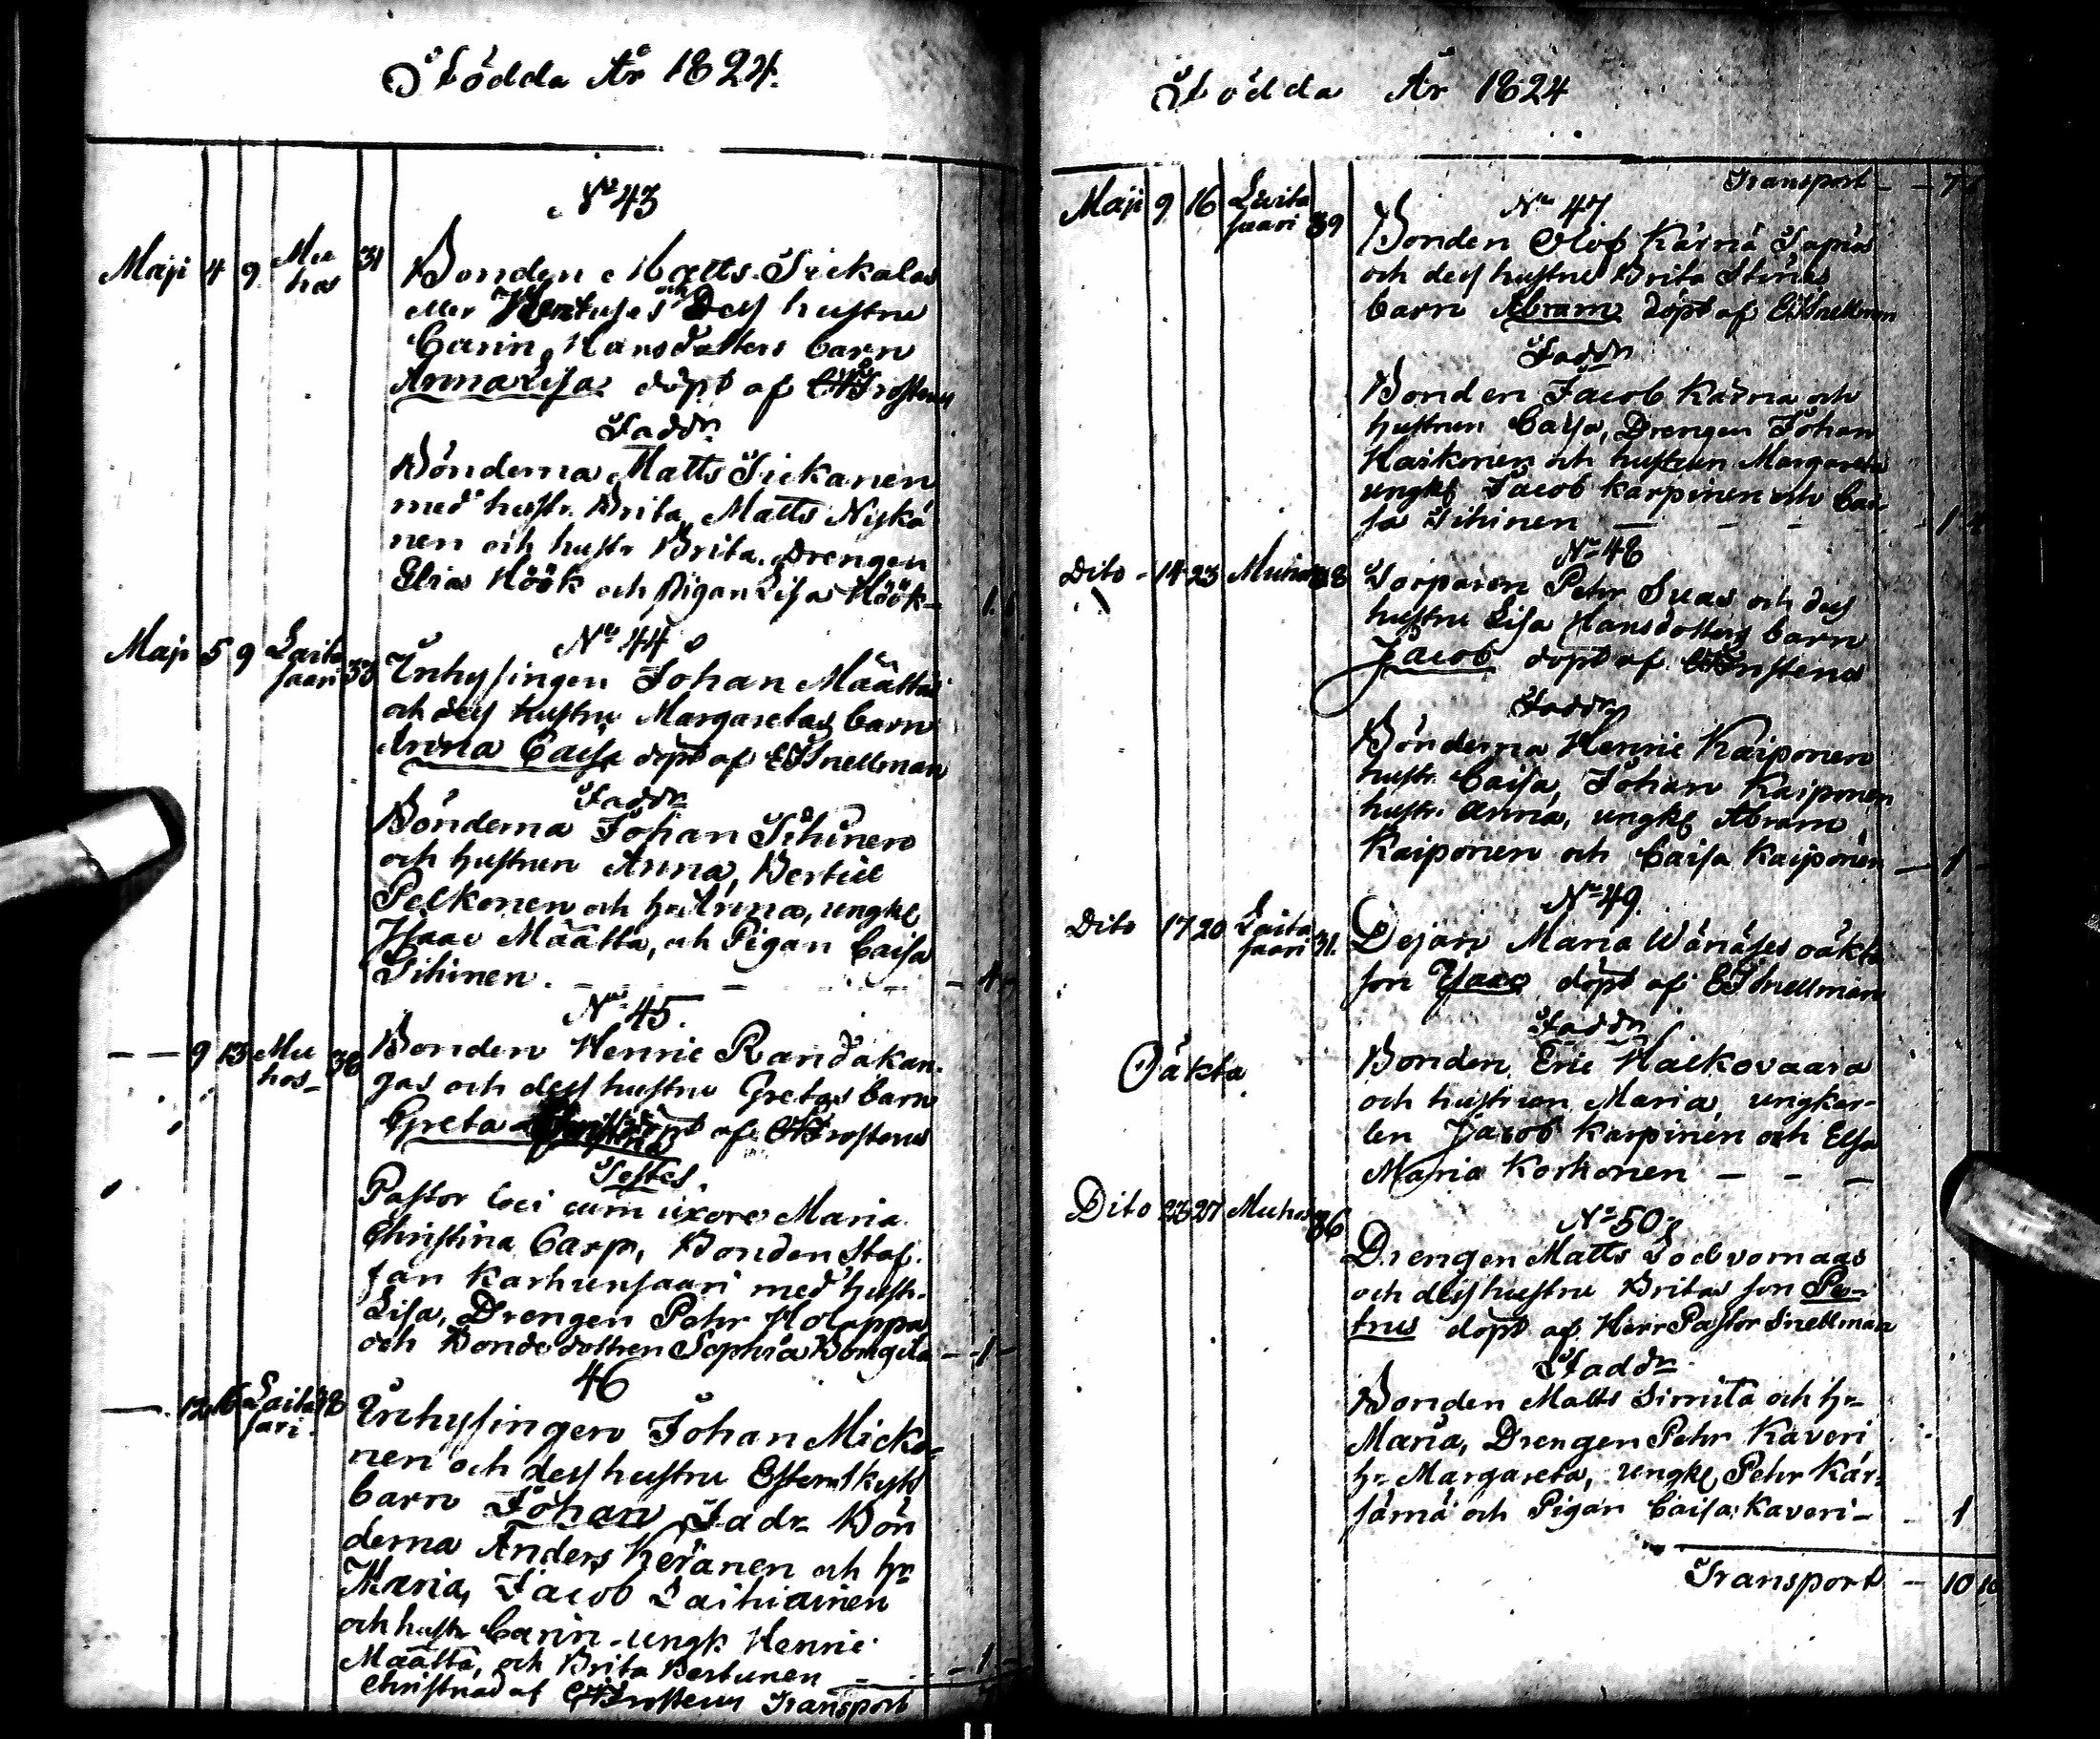 Födda År 1824.
No 43
Maji 4 9 Mu
hos 31 Bonden Matts Tickalas
eller och Dess hustru
Carin Hansdotters barn
Anna Lisa döpt af Frosterus
Faddr
Bönderna Matts Tickanen
med hustr. Brita, Matts Niska
nen och hustr Brita. Drengen
Elias Höök och Pigan Lisa Höök
No 44
Maji 5 9 Laita
saari 33 Inhysingen Johan Määttäs
och dess hustru Margaretas barn
Anna Caisa döpt af Snellman
Faddr
Bönderna Johan Tihinen
och hustrun Anna, Bertill
Pelkonen och hr Anna, ungk
Isaac Määttä, och Pigan Caisa
Tihinen.
No 45.
— — 9 13 Mu
hos Bonden Henric Randakan-
gas och dess hustru Gretas barn
Greta döpt af Frosterus
Testes
Pastor loci cum uxore Maria
Christina Carp, Bonden Staf-
fan Karhunsaari med hustr.
Lisa, Drengen Pehr Holappa
och Bondedottren Sophia — 1 —
46
— 12 16 Laita
sari. Inhysingen Johan Micko-
nen och dess hustru
barn Johan Fadr Bön
derna Anders Keränen och hr
Maria, Jacob Laitiainen
och hustr Carin - ungk Henric
Määttä, och Brita — 1 —
Christnad af Frosterus Transport
Födda År 1824
Transport
No 47
Maji 9 16 Laita
saari 39 Bonden Olof Kärnä Sapias
och dess hustru Brita Stinas
barn Abram döpt af Snellman
Faddr
Bonden Jacob Kärnä och
hustrun Caisa, Drengen Johan
Haikonen och hustrun Margareta
ungk Jacob Karpinen och Cai
sa Tihinen
No 48
Dito 14 23 Muhos 38 Torparen Pehr Suas och dess
hustru Lisa Hansdotters barn
Jacob döpt af
Faddr
Bönderna Henric Kaiponen
hustr. Caisa, Johan Kaiponen
hustr. Anna, ungk Abram
Kaiponen och Caisa Kaiponen — 1
No 49.
Dito 17 20 Laita
saari 31. Dejan Maria oäkta
son Isaac döpt af Snellman
Faddr
Oäkta Bonden Eric Halkovaara
och hustrun Maria, ungkar-
len Jacob Karpinen och Elsa
Maria Korhonen — — —
No 50
Dito 23 27 Muhos 36 Drengen Matts
och dess hustru Britas son Pe-
trus döpt af Herr Pastor Snellman
Faddr
Bonden Matts Sirnita och hr
Maria, Drengen Pehr Kaveri
hr Margareta, ungk Pehr Kär-
sämä och Pigan Caisa Kaveri — 1
Transport — 10